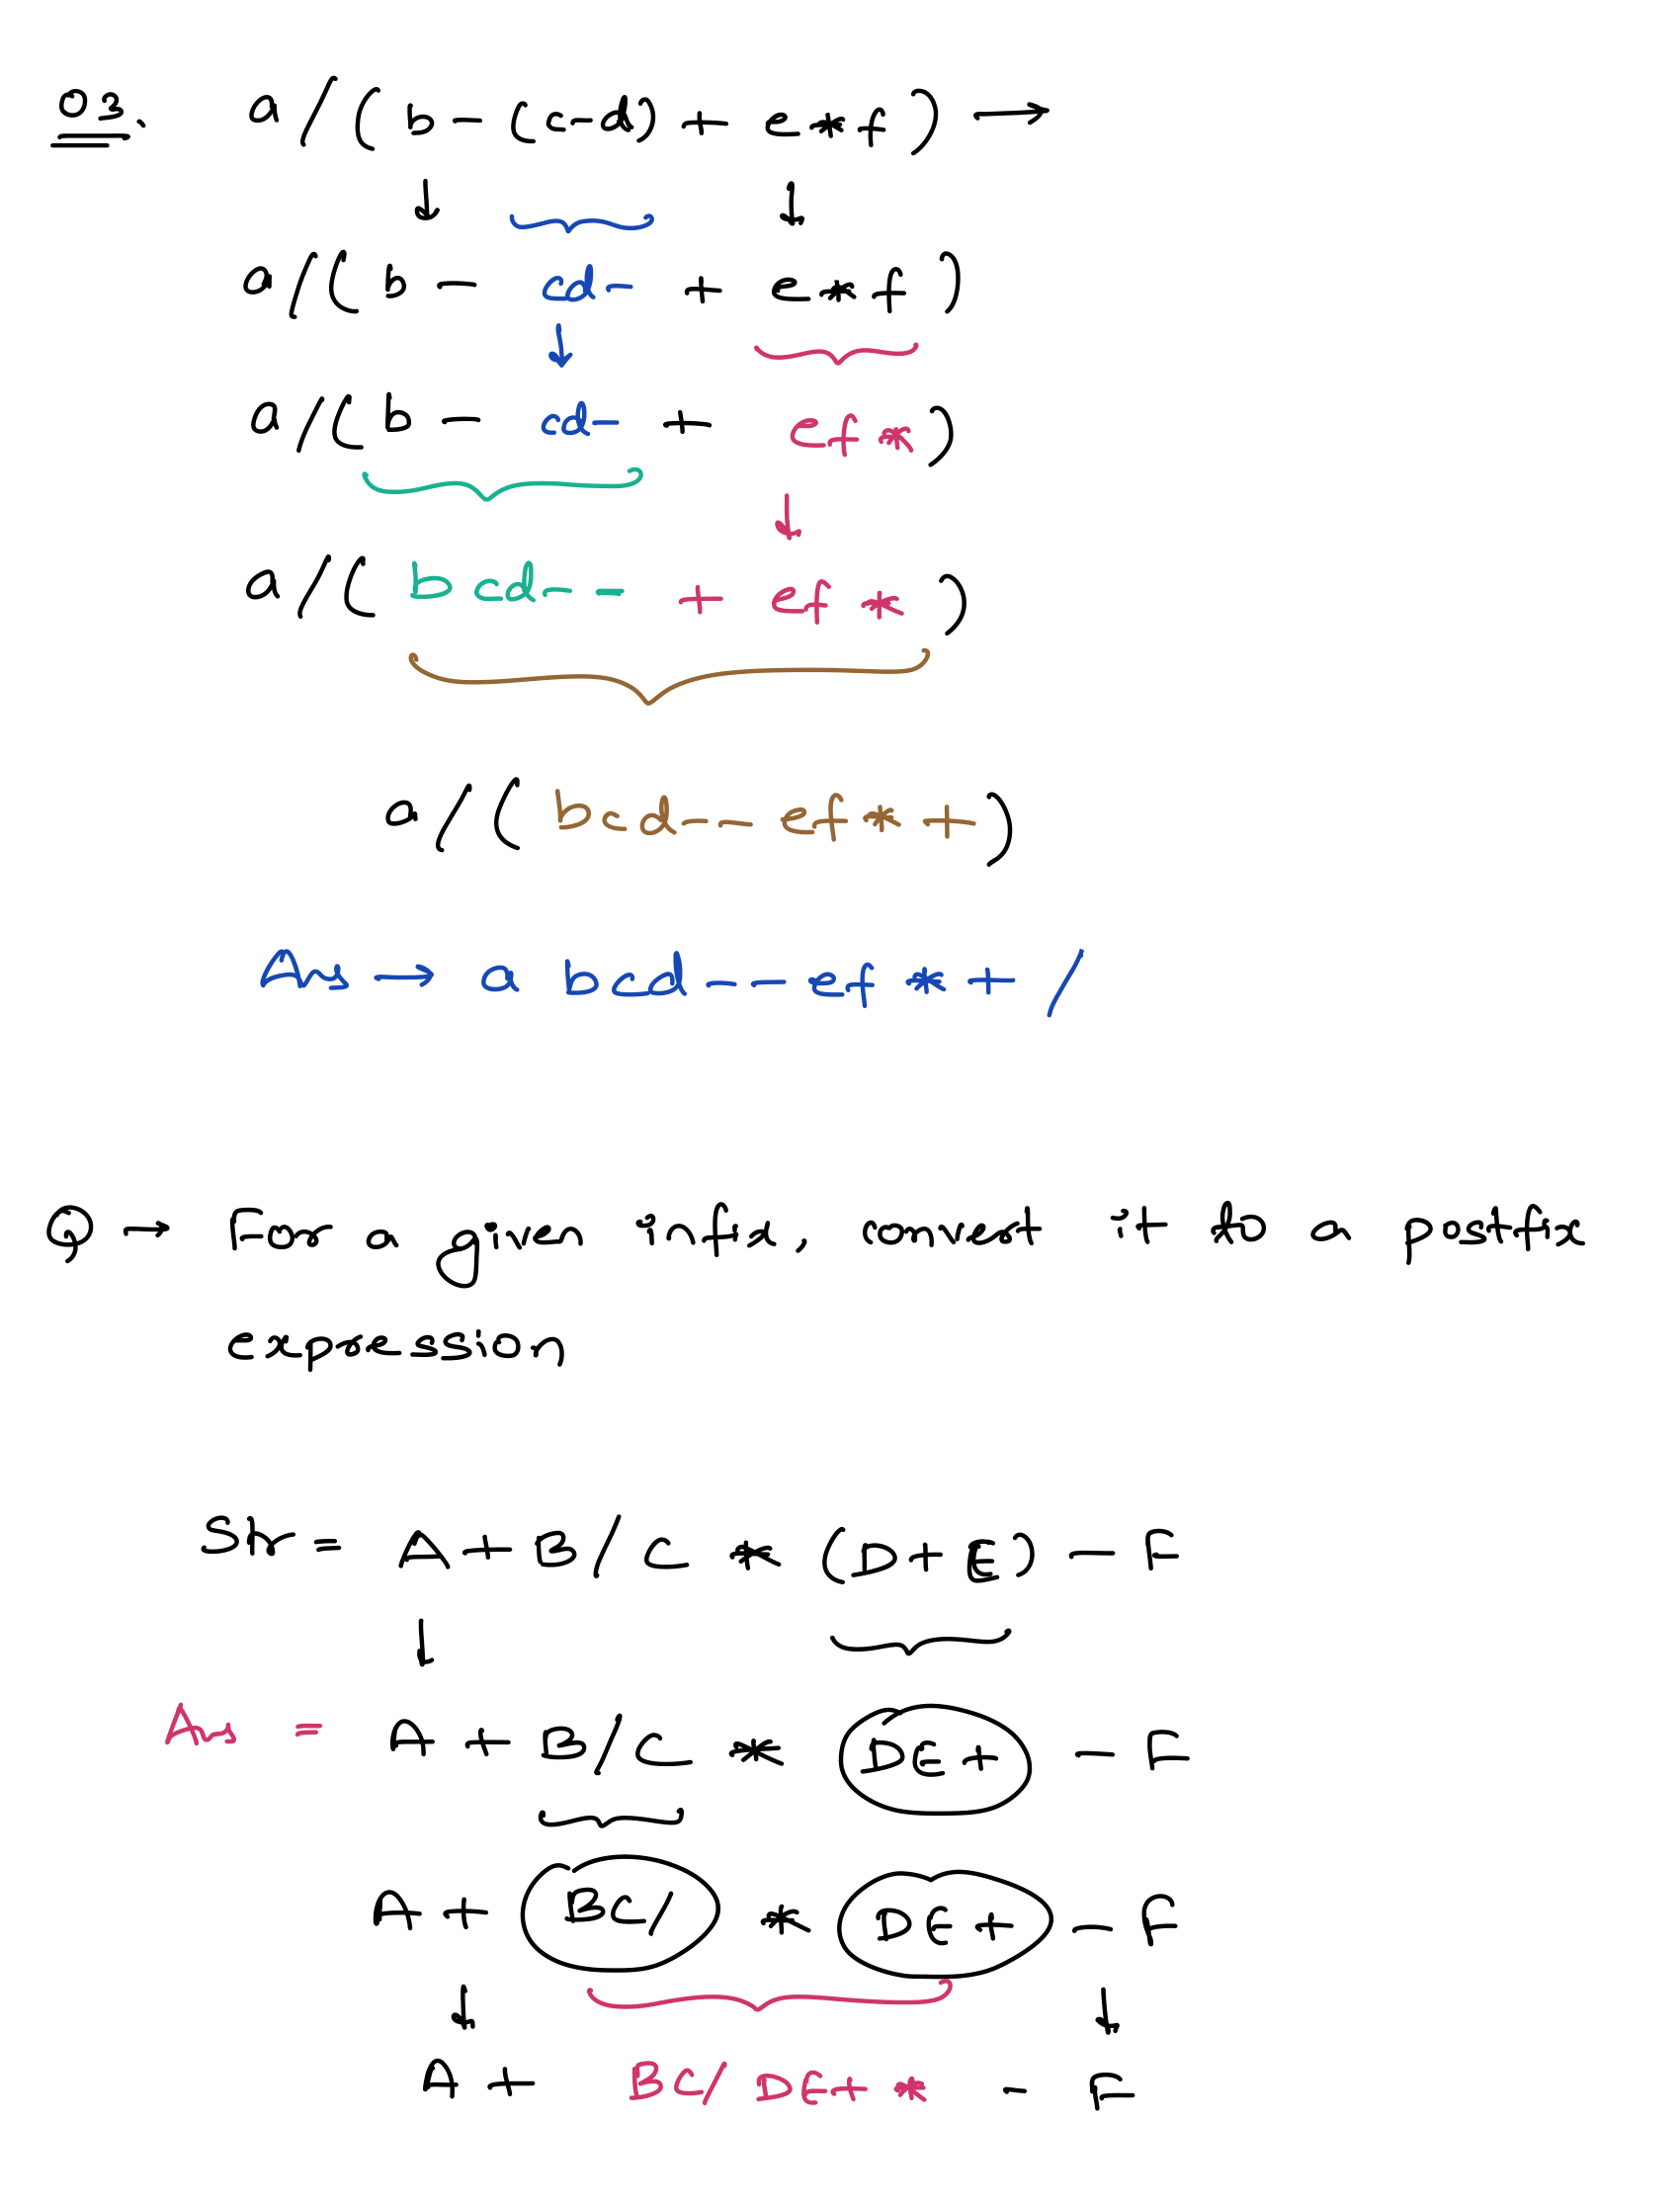 Q3. a/(b-(c-d) + e*f) →
a/(b - cd- + e*f)
a/(b - cd- + ef*)
a/(bcd-- + ef*)
a/(bcd--ef*+)
Ans → a bcd--ef*+/
Q → For a given infix, convert it to a postfix
expression
Str = A+B/C * (D+E) - F
Ans = A + B/C * DE+ - F
A + BC/ * DE+ - F
A + BC/DE+* - F